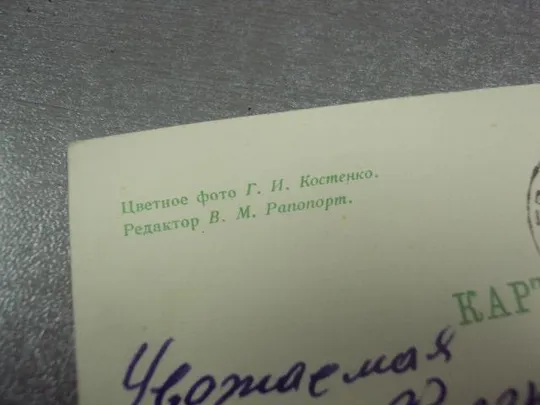 Цветное фото Г. И. Костенко.
Редактор В. М. Рапопорт.
КАРТ
Уважаемая